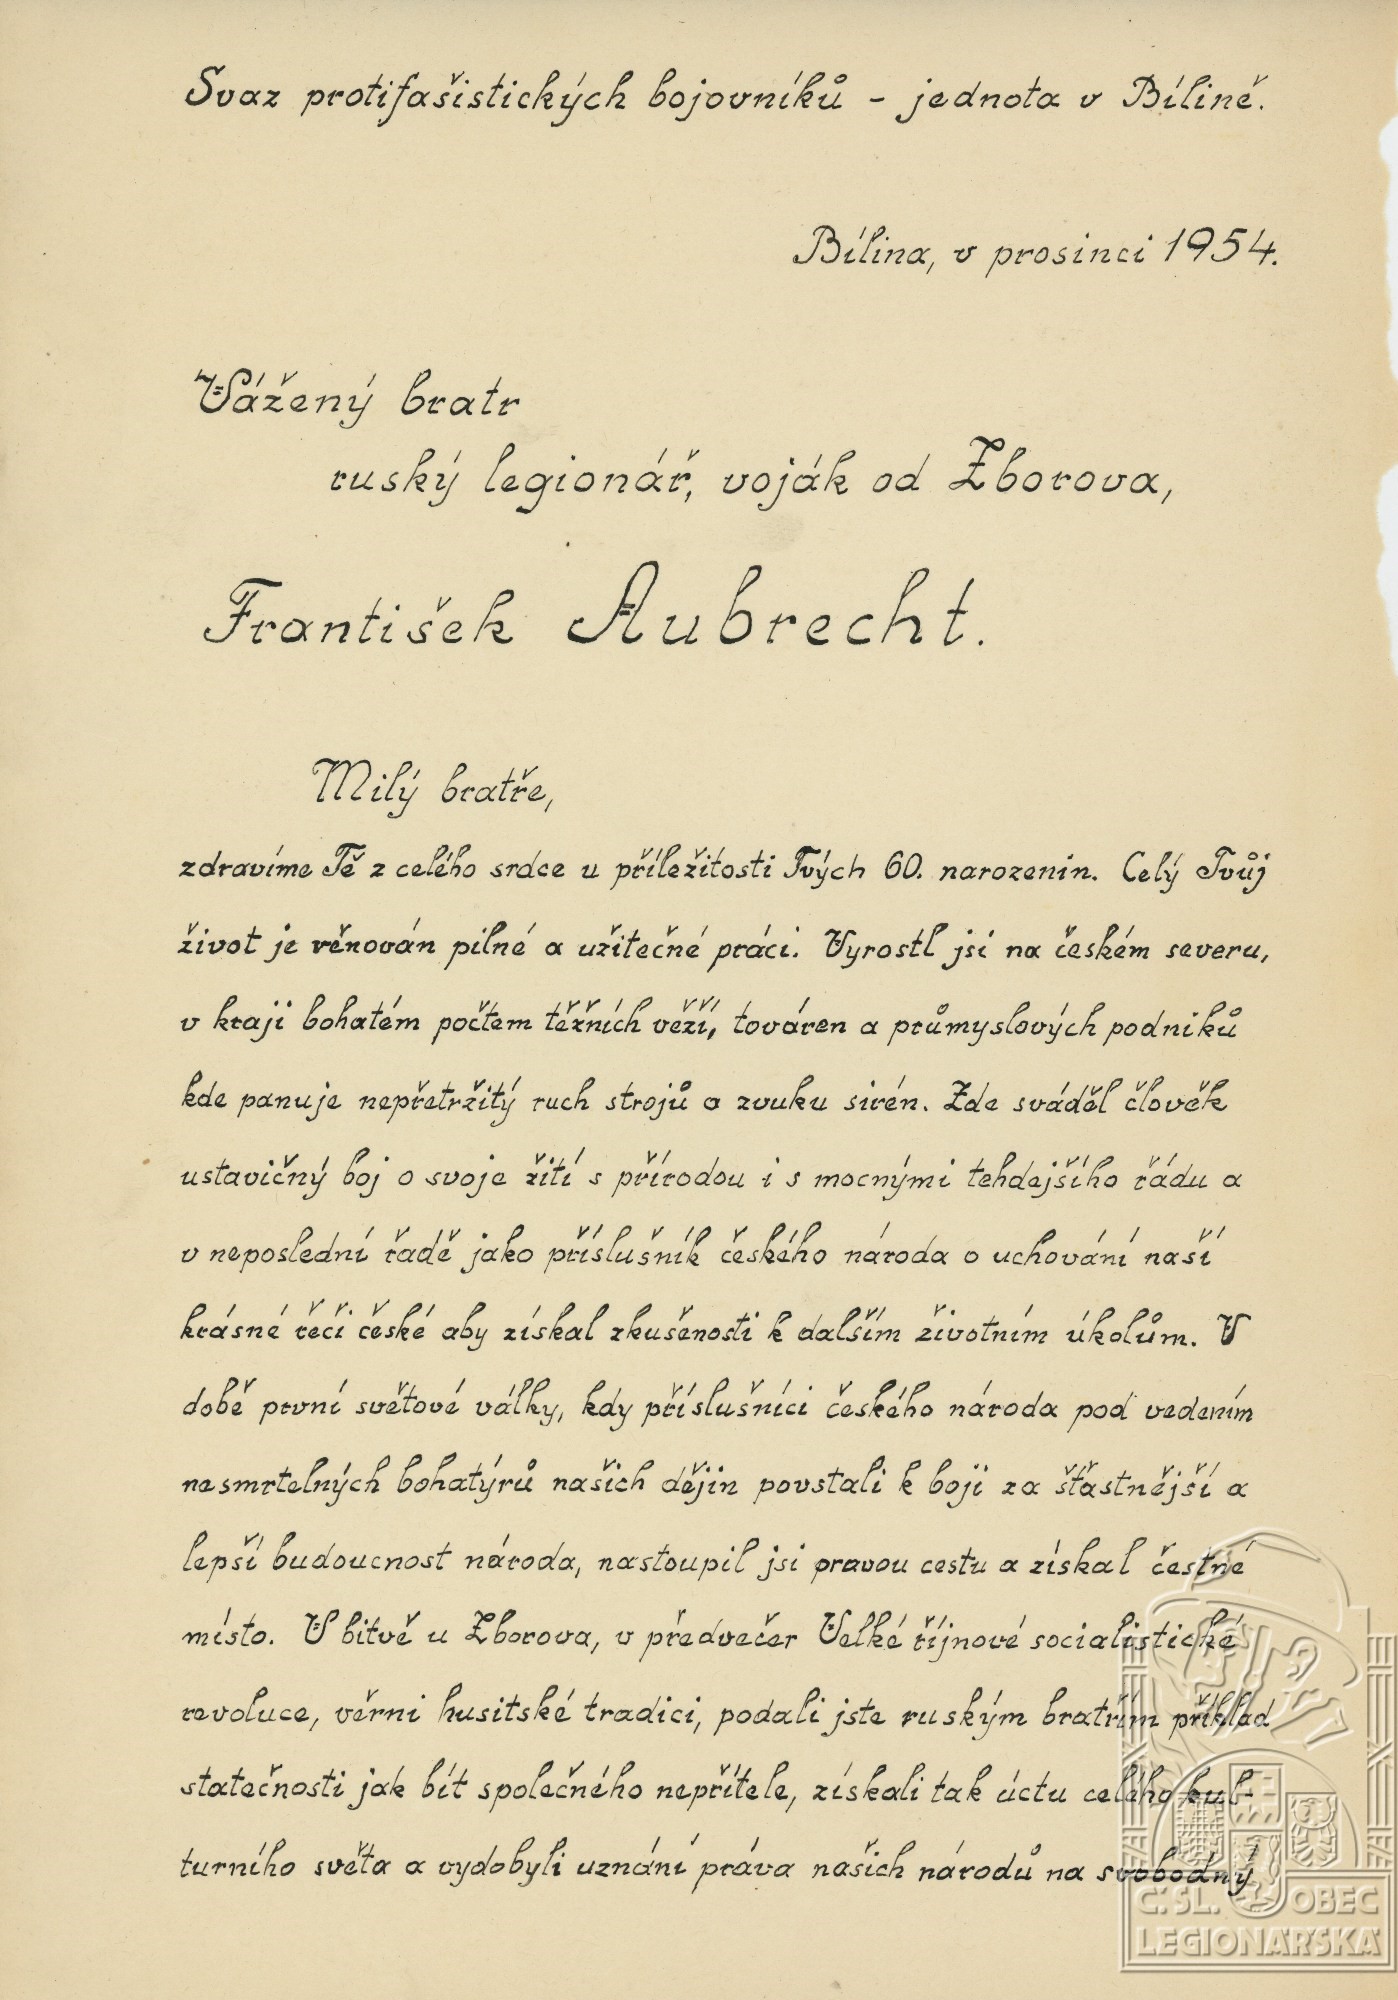 Svaz protifašistických bojovníků - jednota v Bílině.
Bílina, v prosinci 1954.
Vážený bratr
ruský legionář, voják od Zborova,
František Aubrecht.
Milý bratře,
zdravíme Tě z celého srdce u příležitosti Tvých 60. narozenin. Celý Tvůj
život je věnován pilné a užitečné práci. Vyrostl jsi na českém severu,
v kraji bohatém počtem těžních věží, továren a průmyslových podniků
kde panuje nepřetržitý ruch strojů a zvuku sirén. Zde sváděl člověk
ustavičný boj o svoje žití s přírodou i s mocnými tehdejšího řádu a
v neposlední řadě jako příslušník českého národa o uchování naší
krásné řeči české aby získal zkušenosti k dalším životním úkolům. V
době první světové války, kdy příslušníci českého národa pod vedením
nesmrtelných bohatýrů našich dějin povstali k boji za šťastnější a
lepší budoucnost národa, nastoupil jsi pravou cestu a získal čestné
místo. V bitvě u Zborova, v předvečer Velké říjnové socialistické
revoluce, věrni husitské tradici, podali jste ruským bratřím příklad
statečnosti jak bít společného nepřítele, získali tak úctu celého kul-
turního světa a vydobyli uznání práva našich národů na svobodný
Č. SL. OBEC
LEGIONÁŘSKÁ